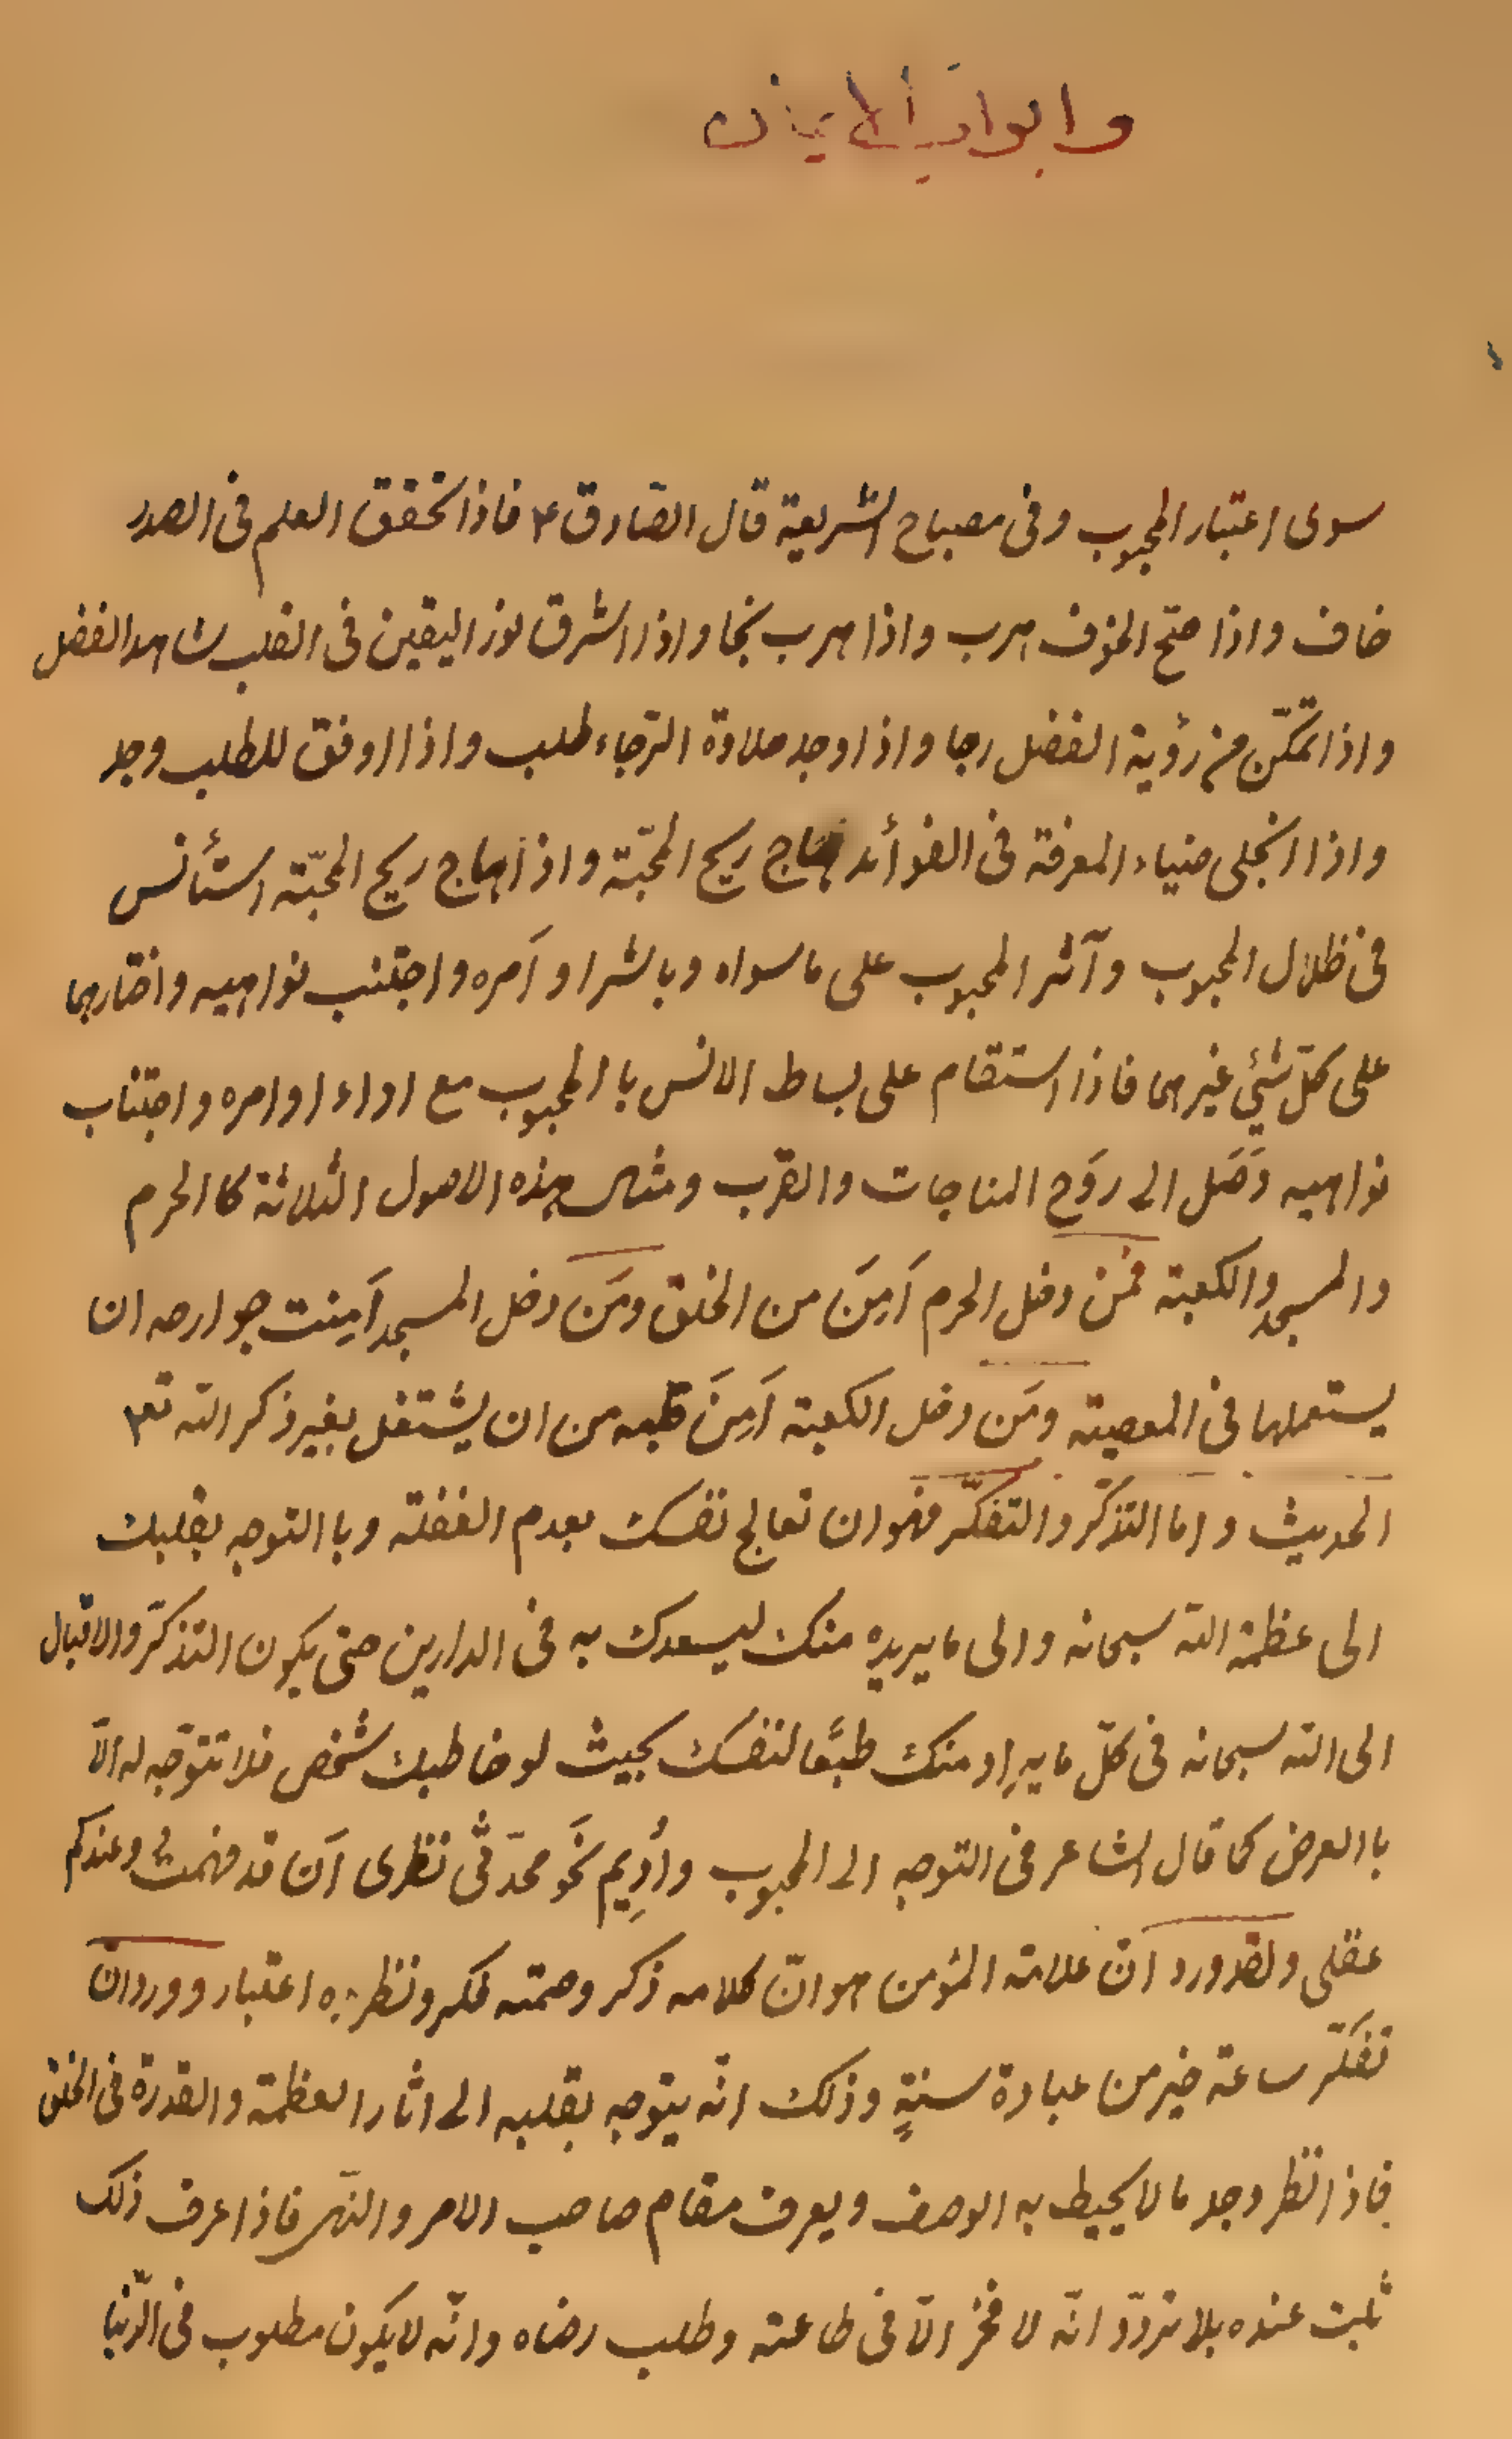 وابواب الايمان
سوى اعتبار المحبوب وفى مصباح الشريعة قال الصّادق ع فاذا تحقق العلم فى الصدر
خاف واذا صحّ الخوف هرب واذا هرب نجا واذا اشرق نور اليقين فى القلب شاهد الفضل
واذا تمكّن من رؤية الفضل رجا واذا وجد حلاوة الرّجاء طلب واذا اوفق للطلب وجد
واذا انجلى ضياء المعرفة فى الفوأد هاج ريح المحبّة واذا هاج ريح المحبّة استأنس
فى ظلال المحبوب وآثر المحبوب على ما سواه وباشر اوَامره واجتنب نواهيه واختارهما
على كلّ شئي غيرهما فاذا استقام على بساط الانس با المحبوب مع اداء اوامره واجتناب
نواهيه وَصَل الى روَح المناجات والقرب ومثال هذه الاصول الثلاثة كا الحرم
والمسجد والكعبة فمن دخل الحرم اَمِنَ من الخلق ومَن دخل المسجد اَمِنت جوارحه ان
يستعملها فى المعصية ومَن دخل الكعبة اَمِنَ قلبه من ان يشتغل بغير ذكر الله تع
الحديث واما التذكّر والتفكّر فهو ان تعالج نفسك بعدم الغفلة وبا التوجه بقلبك
الى عظمة الله سبحانه والى ما يريده منك ليسعدك به فى الدارين حتى يكون التذكّر والاقبال
الى الله سبحانه فى كلّ ما يرِاد منك طبعًا لنفسك بحيث لو خاطبك شخص فلا تتوّجه له الّا
با العرض كما قال الشاعر فى التوجه الى المحبوب وأُدِيم نحَو محدّثى نظرى اَن قد فهمت وعندكم
عقلى ولقد ورد انّ علامة المؤمن هو انّ كلامه ذكر وصمته فكر ونظره اعتبار وورد انّ
تفكّر ساعة خير من عبادة سنةٍ وذلك انّه يتوجه بقلبه الى اثار العظمة والقدرة فى الخلق
فاذا نظر وجد ما لا يحيط به الوصف ويعرف مقام صاحب الامر والنّهى فاذا عرف ذلك
ثبت عنده بلا تردّد انّه لا فخر الّا فى طاعته وطلب رضاه وانّه لا يكون مطلوب فى الدّنيا